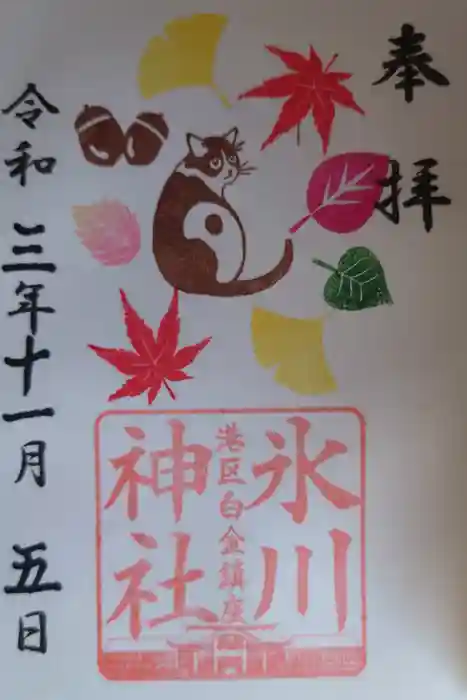 奉拝
氷川
港区白金鎮座
神社
令和三年十一月五日